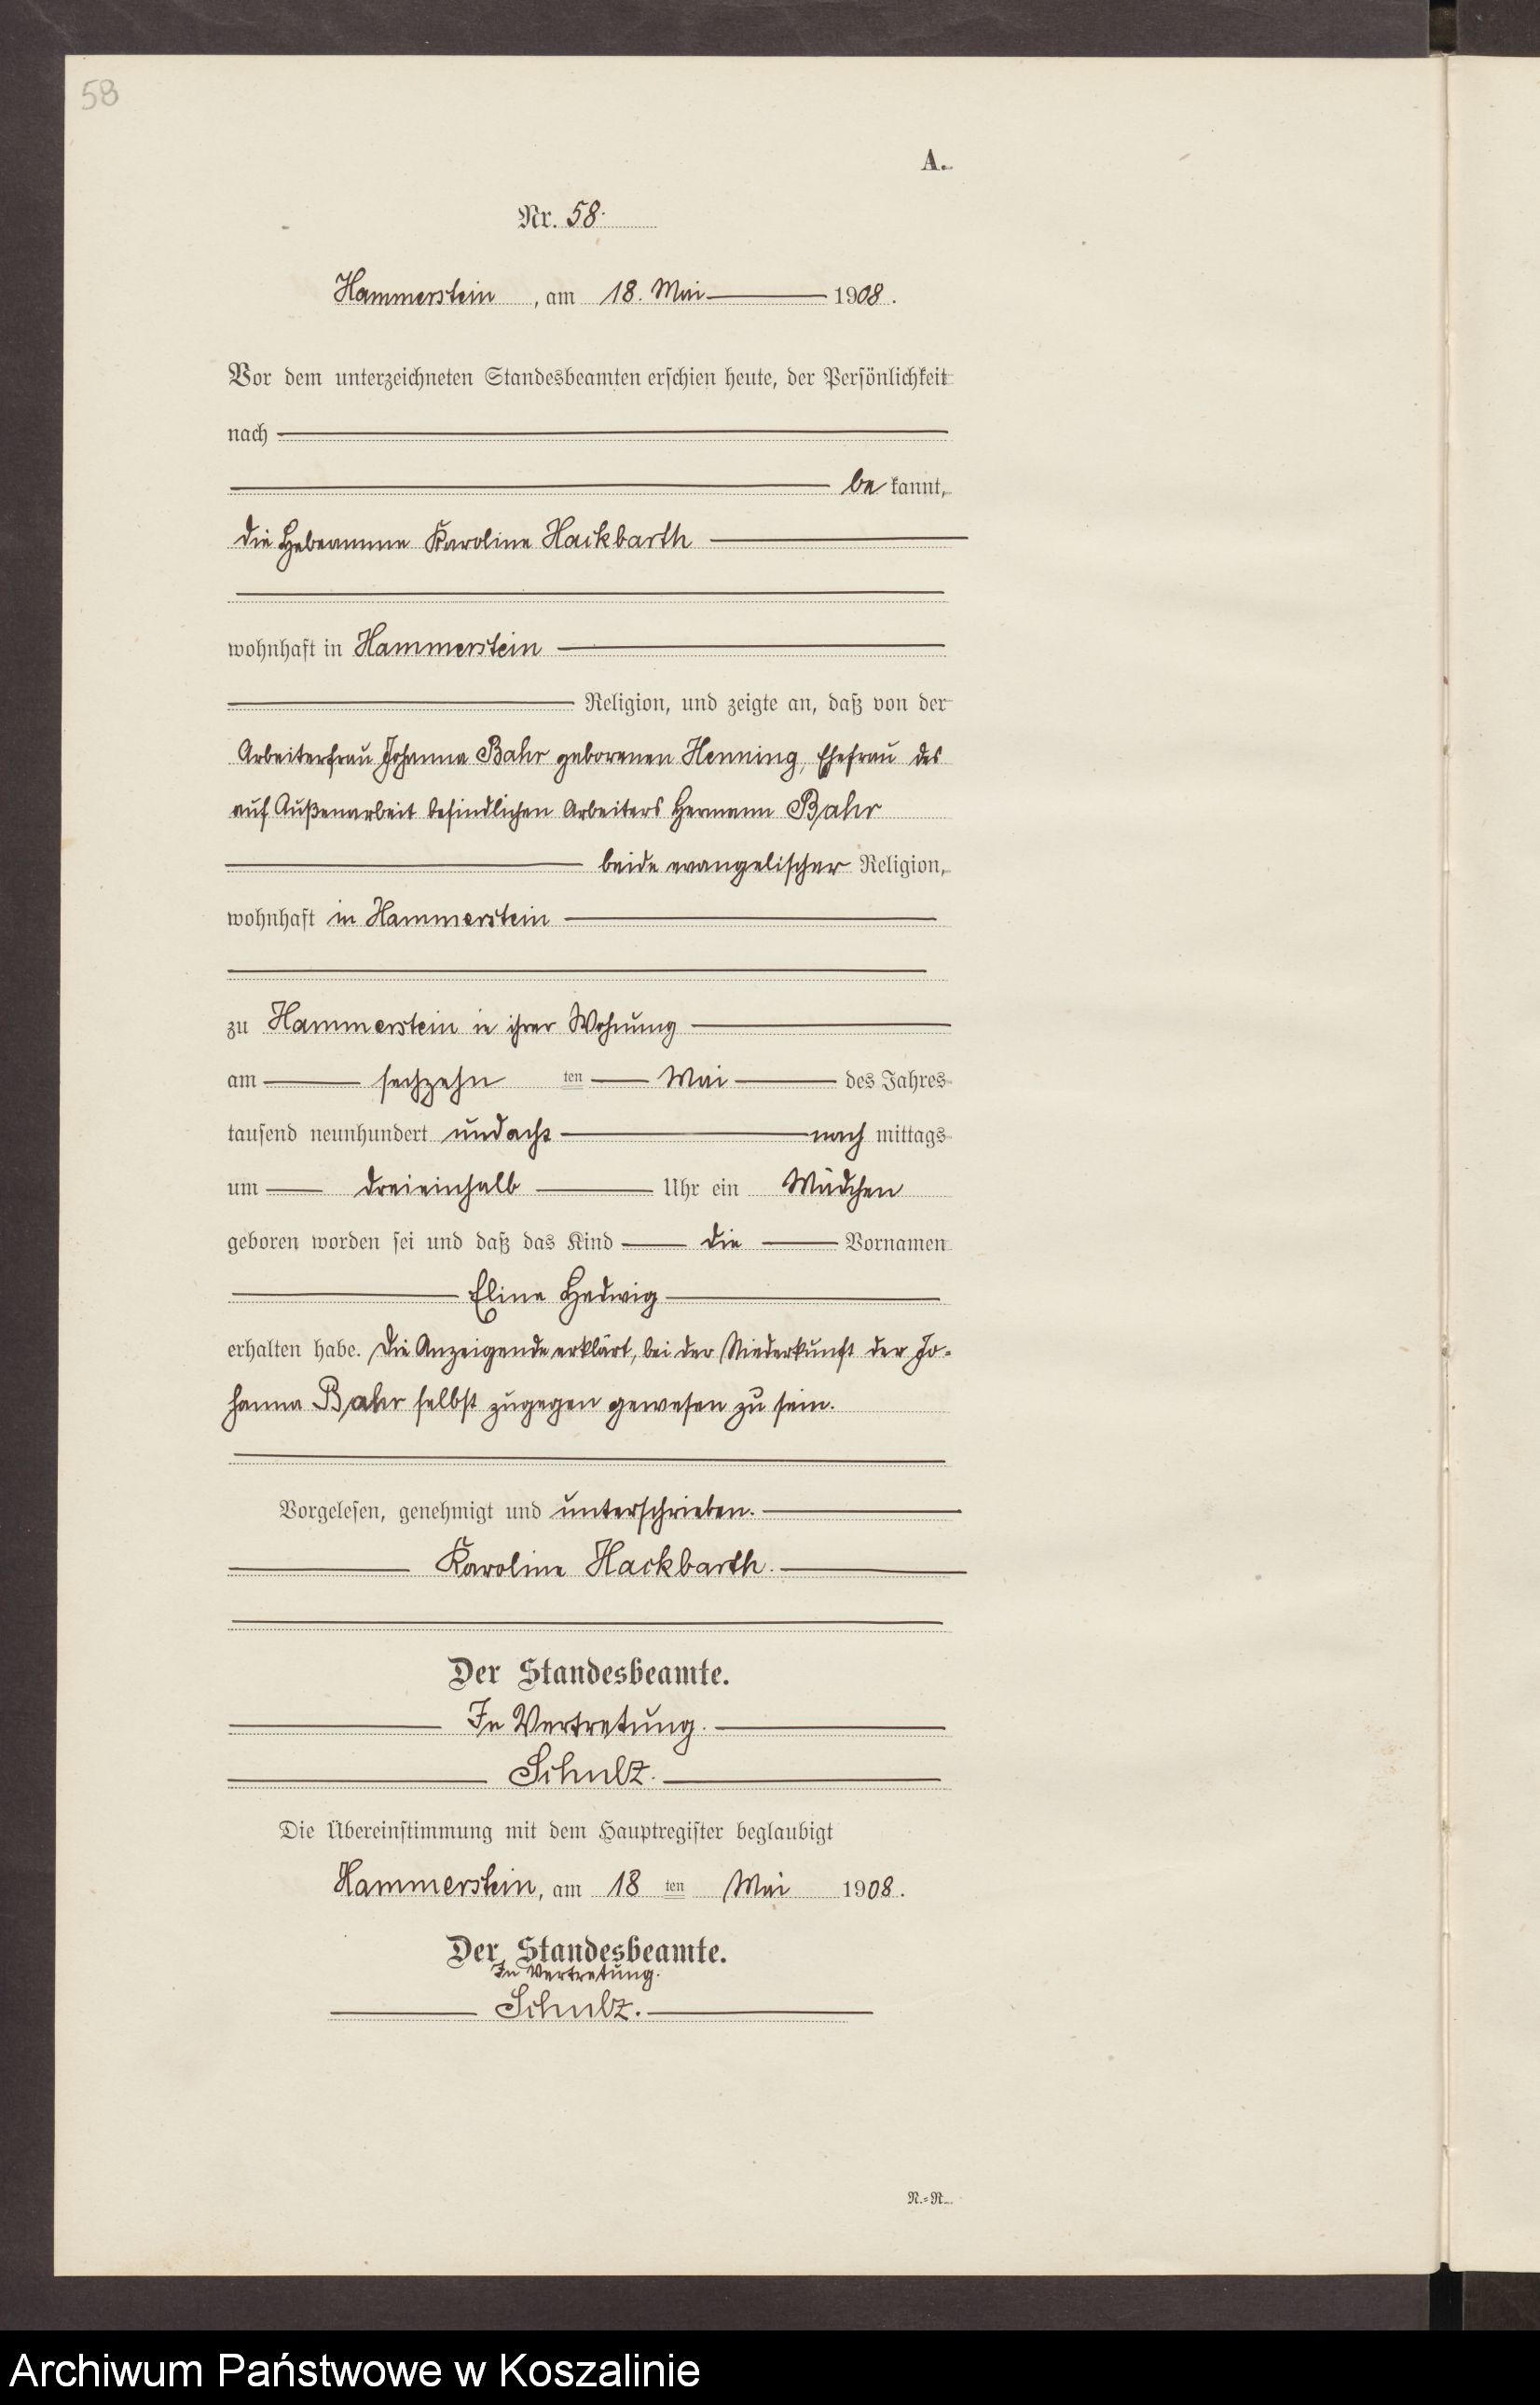 58
A.
Nr. 58.
Hammerstein, am 18. Mai 1908.
Vor dem unterzeichneten Standesbeamten erschien heute, der Persönlichkeit
nach
be kannt,
die Hebeamme Karoline Hackbarth
wohnhaft in Hammerstein
Religion, und zeigte an, daß von der
Arbeiterfrau Johanna Bahr geborenen Henning, Ehefrau des
auf Außenarbeit befindlichen Arbeiters Hermann Bahr
beide evangelischer Religion,
wohnhaft in Hammerstein
zu Hammerstein in ihrer Wohnung
am sechzehn ten Mai des Jahres
tausend neunhundert undacht nach mittags
um dreieinhalb Uhr ein Mädchen
geboren worden sei und daß das Kind die Vornamen
Eline Hedwig
erhalten habe. Die Anzeigende erklärt, bei der Niederkunft der Jo-
hanna Bahr selbst zugegen gewesen zu sein.
Vorgelesen, genehmigt und unterschrieben.
Karoline Hackbarth.
Der Standesbeamte.
In Vertretung.
Schulz.
Die Übereinstimmung mit dem Hauptregister beglaubigt
Hammerstein, am 18 ten Mai 1908.
Der Standesbeamte.
In Vertretung.
Schulz.
N.=R.
Archiwum Państwowe w Koszalinie